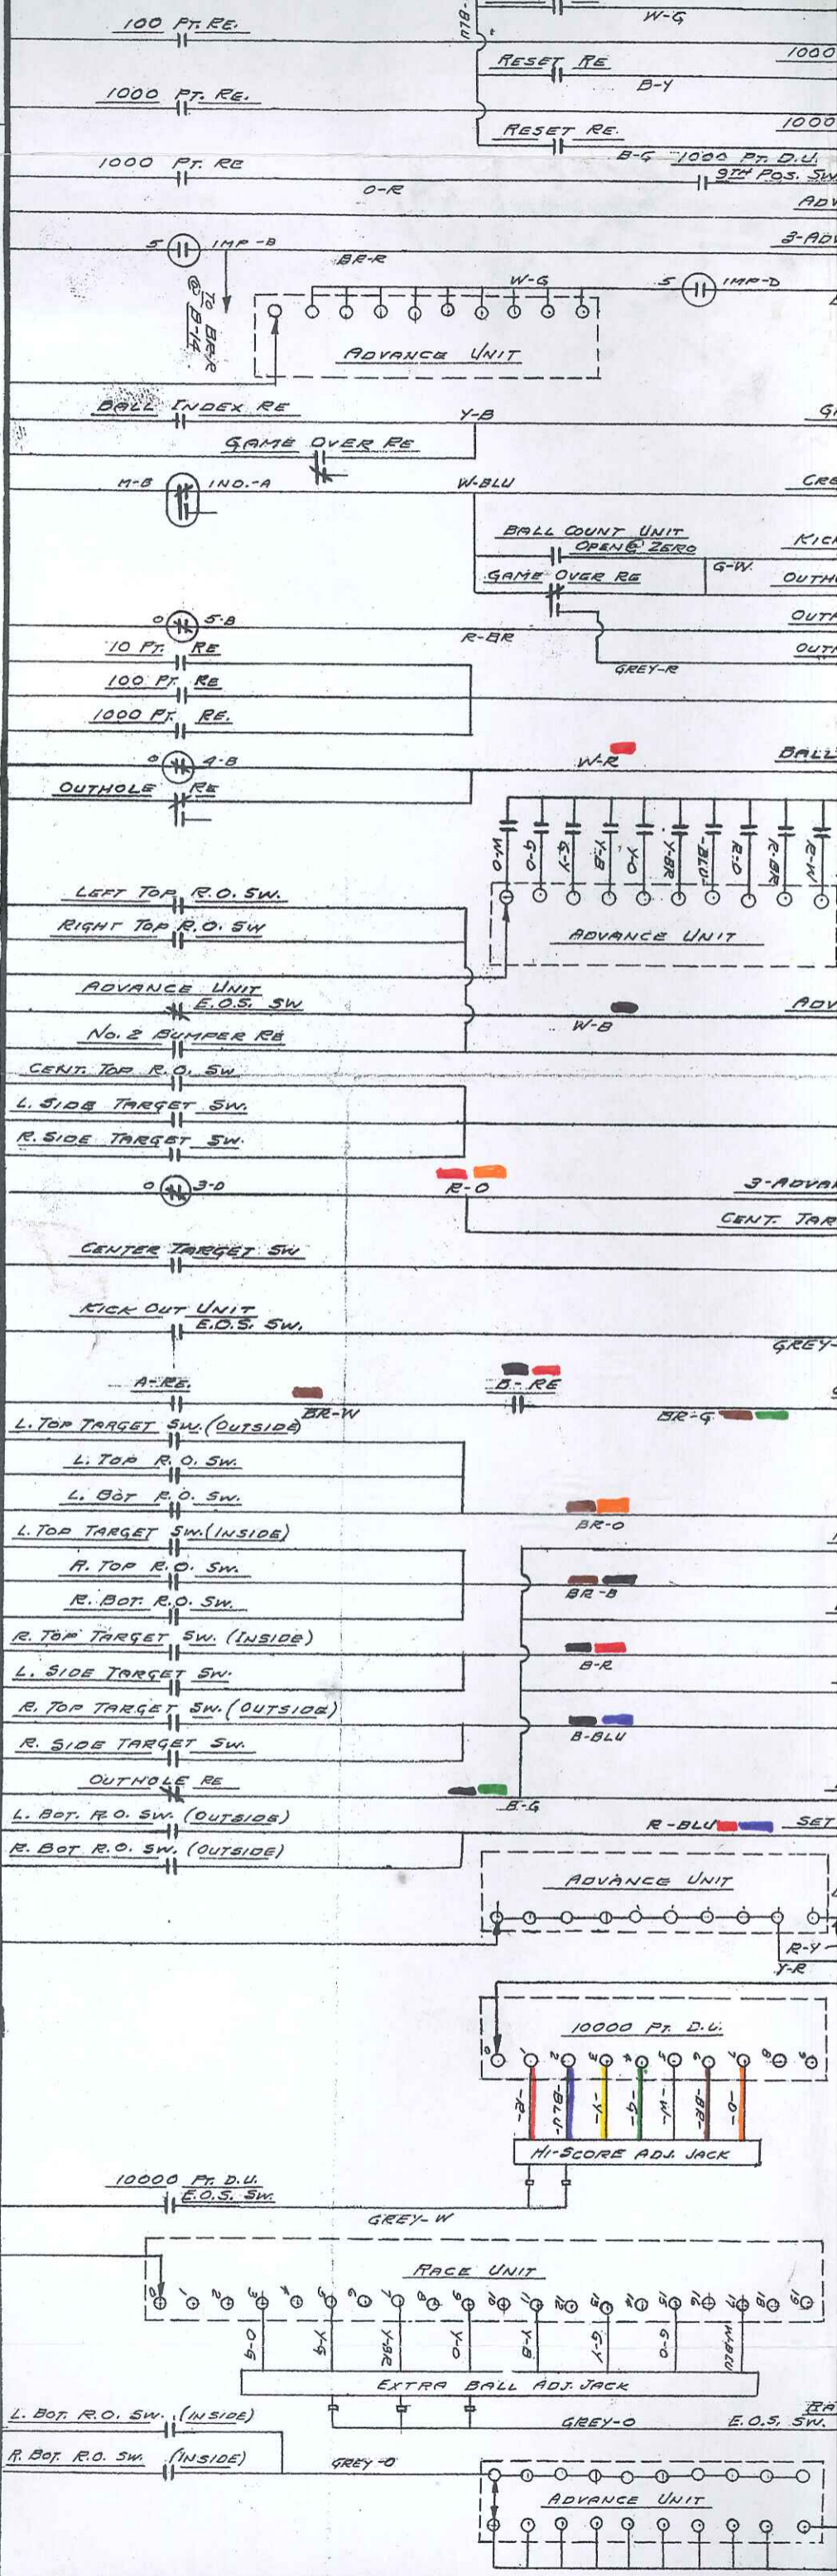 W-G
-BLU
100 PT. RE.
1000
RESET RE
B-Y
1000 PT. RE.
1000
RESET RE.
B-G 1000 PT. D.U.
1000 PT. RE
9TH POS. SW
O-R
ADV
3-ADV
5 IMP-B
BR-R
TO BR-R
@ B-14.
W-G
5 IMP-D
ADVANCE UNIT
BALL INDEX RE
Y-B
GAME OVER RE
M-B IND.-A
W-BLU
CRE
BALL COUNT UNIT
OPEN@ ZERO
KICK
G-W.
GAME OVER RE
OUTH
0 5-B
OUTH
R-BR
10 PT. RE
OUTH
GREY-R
100 PT. RE
1000 PT. RE.
0 4-B
W-R
BALL
OUTHOLE RE
W-O G-O G-Y Y-B Y-O Y-BR -BLU- R-O R-BR R-W
LEFT TOP R.O. SW.
RIGHT TOP R.O. SW
ADVANCE UNIT
ADVANCE UNIT
E.O.S. SW
ADV
W-B
NO. 2 BUMPER RE
CENT. TOP R.O. SW
L. SIDE TARGET SW.
R. SIDE TARGET SW.
0 3-D
R-O
3-ADVAN
CENT. TAR
CENTER TARGET SW
KICK OUT UNIT
E.O.S. SW.
GREY-
A-RE.
B-RE
BR-W
BR-G
L. TOP TARGET SW. (OUTSIDE)
L. TOP R.O. SW.
L. BOT R.O. SW.
BR-O
L. TOP TARGET SW. (INSIDE)
R. TOP R.O. SW.
BR-B
R. BOT. R.O. SW.
R. TOP TARGET SW. (INSIDE)
B-R
L. SIDE TARGET SW.
R. TOP TARGET SW. (OUTSIDE)
B-BLU
R. SIDE TARGET SW.
OUTHOLE RE
B-G
L. BOT. R.O. SW. (OUTSIDE)
R-BLU SET
R. BOT R.O. SW. (OUTSIDE)
ADVANCE UNIT
R-Y
Y-R
10000 PT. D.U.
0 1 2 3 4 5 6 7 8 9
-R- -BLU- -Y- -G- -W- -BR- -O-
HI-SCORE ADJ. JACK
10000 PT. D.U.
E.O.S. SW.
GREY-W
RACE UNIT
0 1 2 3 4 5 6 7 8 9 10 11 12 13 14 15 16 17 18 19
O-G Y-G Y-BR Y-O Y-B G-Y G-O W-BLU
EXTRA BALL ADJ. JACK
L. BOT. R.O. SW. (INSIDE)
RA
GREY-O
E.O.S. SW.
R. BOT. R.O. SW. (INSIDE)
GREY-O
ADVANCE UNIT